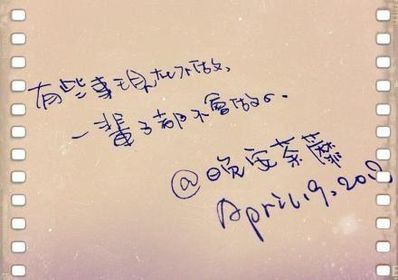 有些事現在不做、
一輩子都不會做了.
@晚安荼蘼
April.9.201